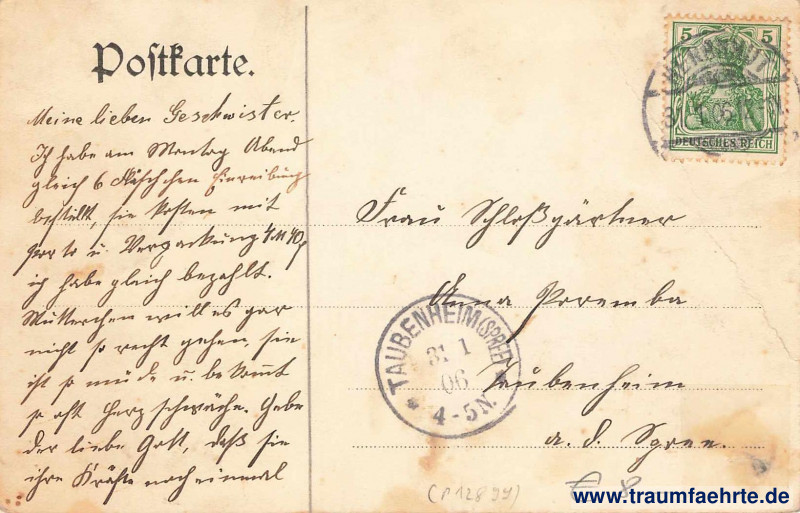 Postkarte.
Meine lieben Geschwister.
Ich habe am Montag Abend
gleich 6 Fläschchen Einreibung
bestellt, sie kosten mit
Porto u. Verpackung 4 M 40,
ich habe gleich bezahlt.
Mütterchen will es gar
nicht so recht gehen, sie
ist so müde u. bekommt
so oft Herzschwäche. Gebe
der liebe Gott, daß sie
ihre Kräfte noch einmal
5 5
DEUTSCHES REICH
Frau Schloßgärtner
Anna Poremba
Taubenheim
a. d. Spree.
TAUBENHEIM (SPREE)
31 1
06
4-5N.
(P12899)
www.traumfaehrte.de